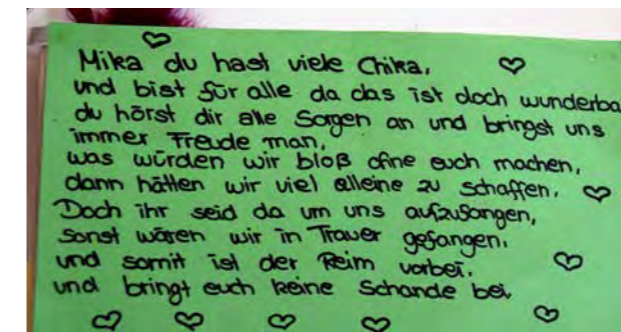 Mika du hast viele Chika,
und bist für alle da das ist doch wunderba
du hörst dir alle Sorgen an und bringst uns
immer Freude man,
was würden wir bloß ohne euch machen,
dann hätten wir viel alleine zu schaffen.
Doch ihr seid da um uns aufzufangen,
sonst wären wir in Trauer gefangen.
und somit ist der Reim vorbei.
und bringt euch keine Schande bei